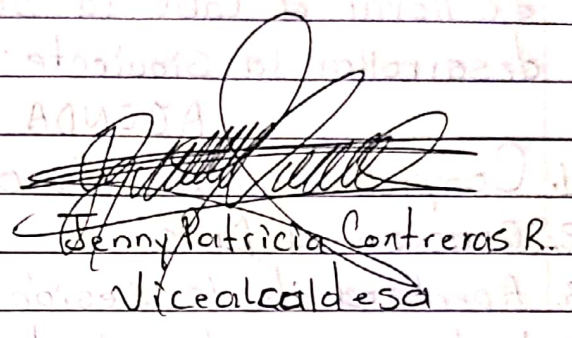 Jenny Patricia Contreras R.
Vicealcaldesa